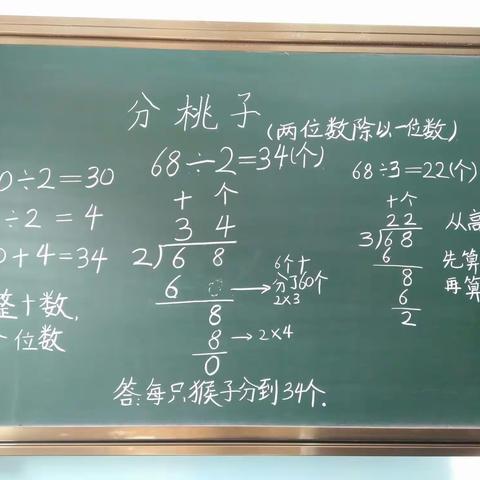 分桃子
(两位数除以一位数)
0÷2=30
÷2=4
0+4=34
整十数,
个位数
68÷2=34(个)
十 个
3 4
2 6 8
6 0
8
8
0
6个十
分了60个
2×3
→2×4
68÷3=22(个)
十个
22
3 68
6
8
6
2
从高
先算
再算
答:每只猴子分到34个.